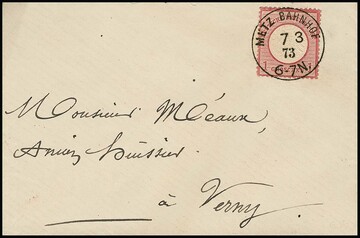 METZ BAHNHOF
7 3
73
6-7N.
Monsieur Méaux,
Ancien huissier
à Verny.